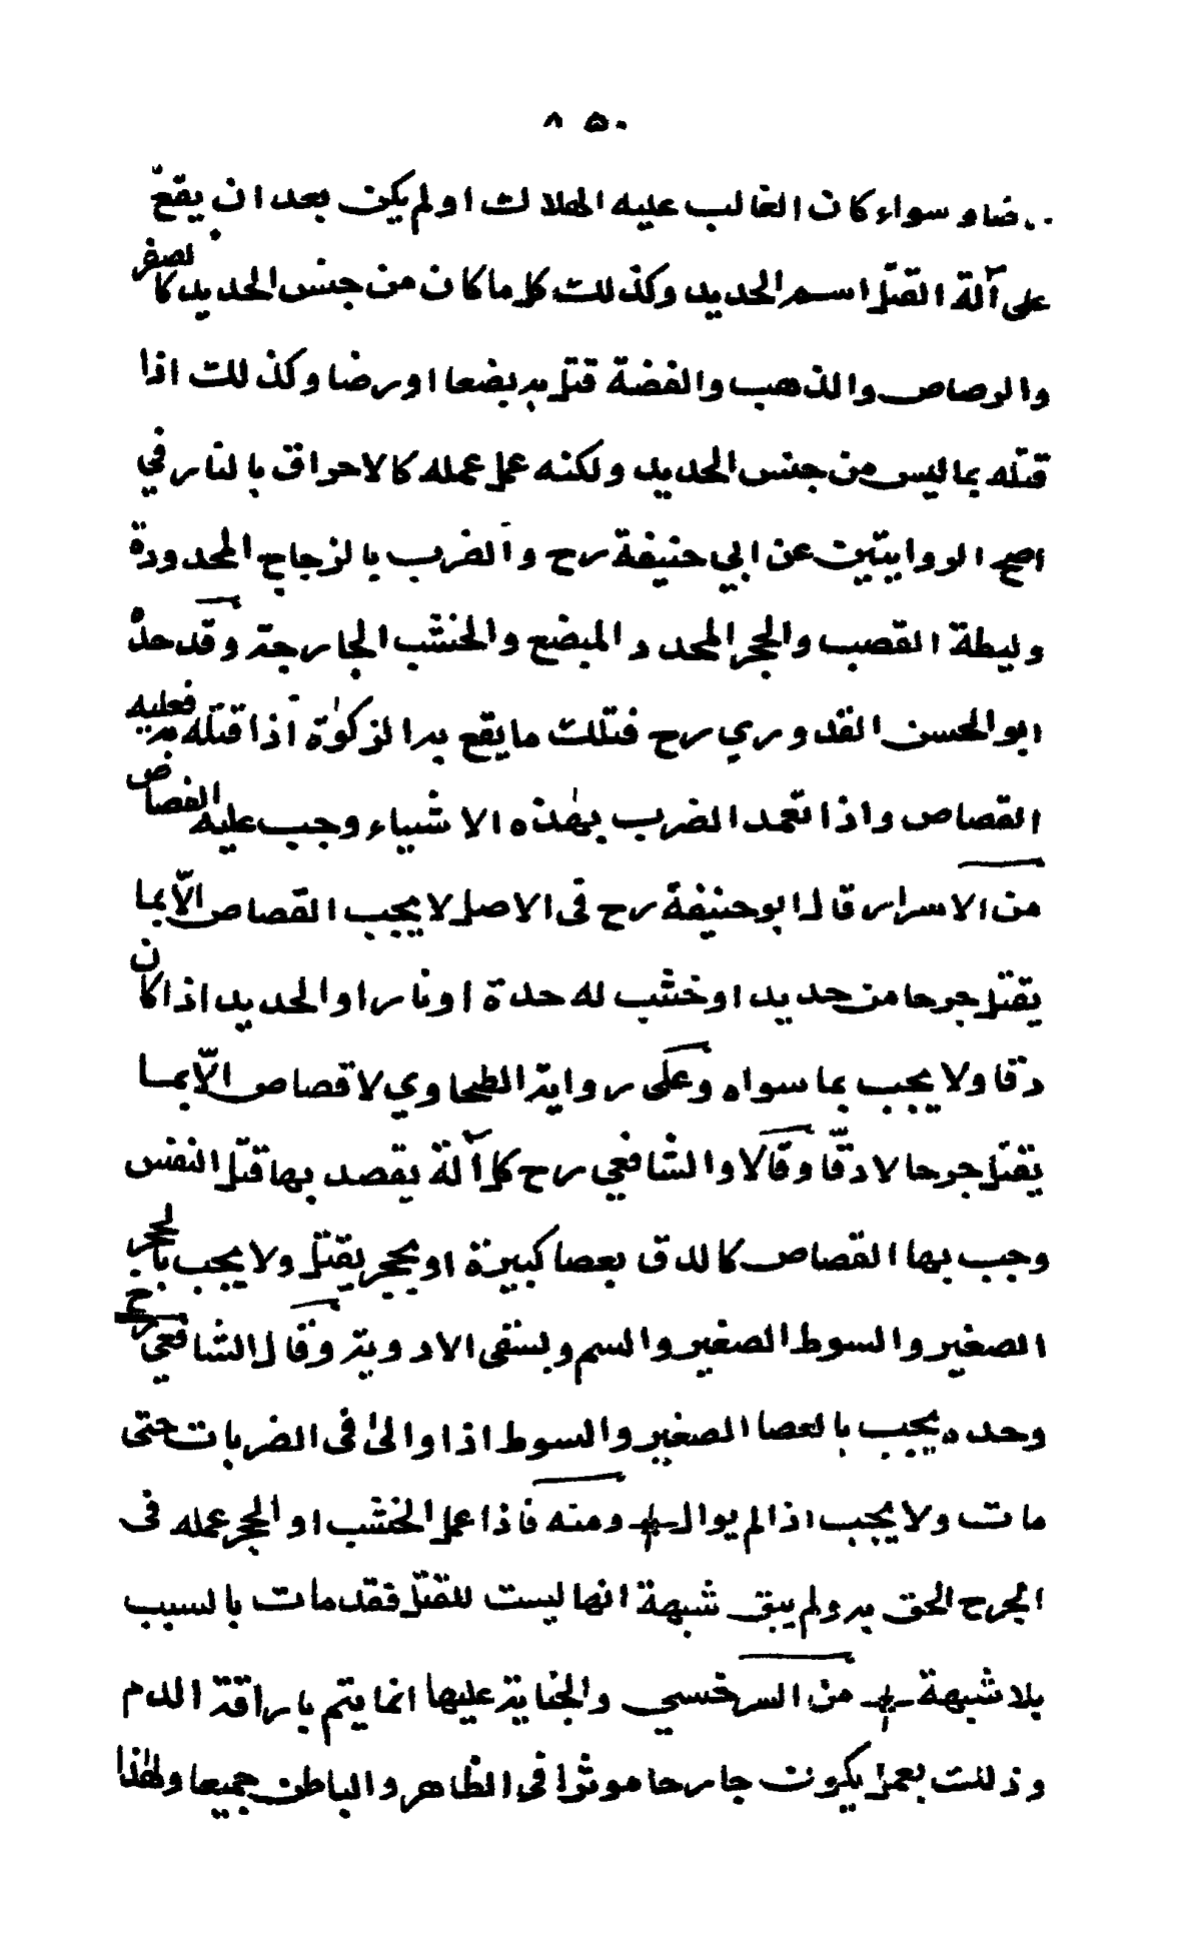 ٨٥٠
رضا وسواء كان الغالب عليه الهلاك او لم يكن بعد ان يقع
على آلة القتل اسم الحديد وكذلك كل ما كان من جنس الحديد كالصفر
والرصاص والذهب والفضة قتل به بضعا او رضا وكذلك اذا
قتله بما ليس من جنس الحديد ولكنه عمل عمله كالاحراق بالنار في
اصح الروايتين عن ابي حنيفة رح والضرب بالزجاج المحدودة
وليطة القصب والحجر المحدد المبضع والخشب الجارحة وقد حدّه
ابو الحسن القدوري رح فتلك ما يقع به الزكوٰة اذا قتله به فعليه
القصاص واذا تعمد الضرب بهٰذه الاشياء وجب عليه القصاص
من الاسرار قال ابو حنيفة رح فى الاصل لا يجب القصاص الّا بما
يقتل جرحا من حديد او خشب له حدة او نار او الحديد اذا كان
دقا ولا يجب بما سواه وعلى رواية الطحاوي لا قصاص الّا بما
يقتل جرحا لا دقّا وقالا والشافعي رح كل آلة يقصد بها قتل النفس
وجب بها القصاص كالدق بعصا كبيرة او بحجر يقتل ولا يجب بالحجر
الصغير والسوط الصغير والسم وبسقى الادوية وقال الشافعي رح
وحده يجب بالعصا الصغير والسوط اذا والىٰ فى الضربات حتى
مات ولا يجب اذا لم يوال ومنه فاذا عمل الخشب او الحجر عمله فى
الجرح الحق به ولم يبق شبهة انها ليست للقتل فقد مات بالسبب
بلا شبهة من السرخسي والجناية عليها انما يتم باراقة الدم
وذلك يكون جارحا موثرا فى الظاهر والباطن جميعا ولهٰذا